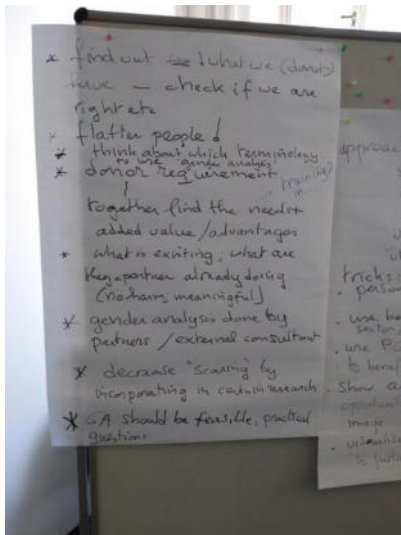 * find out what we (donors)
have — check if we are
right etc
* flatter people!
* think about which terminology
to use "gender analysis"
* donor requirement
training
in...
together find the needs +
added value/advantages
* what is exciting; what are
they + partner already doing
(no harm, meaningful)
* gender analysis done by
partners / external consultant
* decrease "scaring" by
incorporating in certain research
* GA should be feasible, practical
questions
approach
tricks:
person
use
sector
use
to benef
show a
opportuni
image
visualiz
to